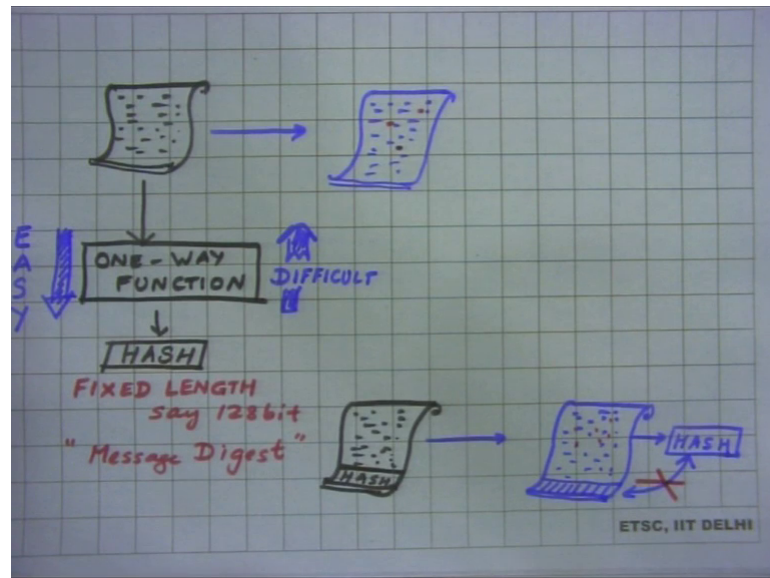 EASY
ONE-WAY
FUNCTION
DIFFICULT
HASH
FIXED LENGTH
say 128bit
"Message Digest"
HASH
HASH
ETSC, IIT DELHI